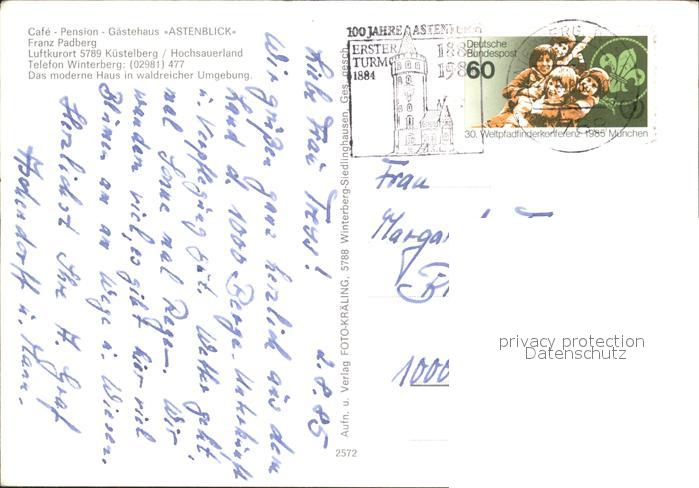 Café - Pension - Gästehaus »ASTENBLICK«
Franz Padberg
Luftkurort 5789 Küstelberg / Hochsauerland
Telefon Winterberg: (02981) 477
Das moderne Haus in waldreicher Umgebung.
100 JAHRE ASTENTURM
ERSTER
TURM
1884
Deutsche
Bundespost
60
30. Weltpfadfinderkonferenz 1985 München
2.8.85
Liebe Frau
Wir grüßen ganz herzlich aus dem
Land d. 1000 Berge. Unterkunft
u. Verpflegung gut. Wetter geht,
mal Sonne mal Regen. Wir
wandern viel, es gibt hier viel
Blumen am Wege u. Wiesen.
Herzlichst Ihre H. Graf
u. Mann.
Aufn. u. Verlag FOTO-KRÄLING, 5788 Winterberg-Siedlinghausen, Ges. gesch.
2572
Frau
Margar
1000
privacy protection
Datenschutz